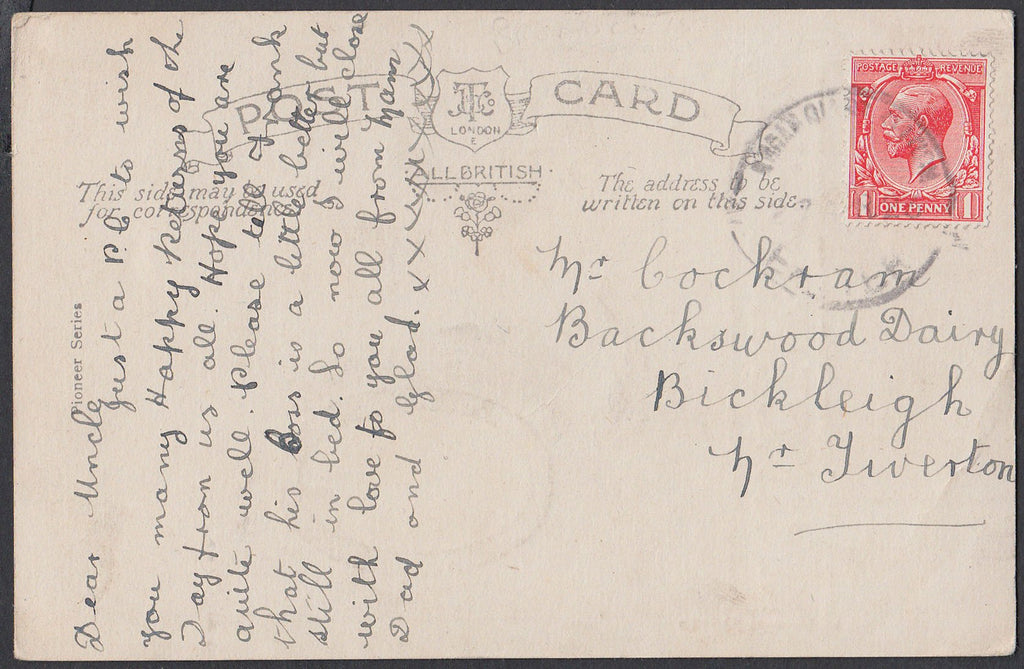 POST CARD
TCo
LONDON
E
ALL BRITISH
This side may be used
for correspondence
The address to be
written on this side.
POSTAGE REVENUE
1 ONE PENNY 1
Pioneer Series
Dear Uncle
Just a P.C. to wish
you many Happy Returns of the
Day from us all. Hope you are
quite well. Please tell Frank
that his Boss is a little better but
still in bed. So now I will close
with love to you all from Mam
Dad and Glad. x x x x x x x x x
Mr Cockram
Backswood Dairy
Bickleigh
Nr Tiverton